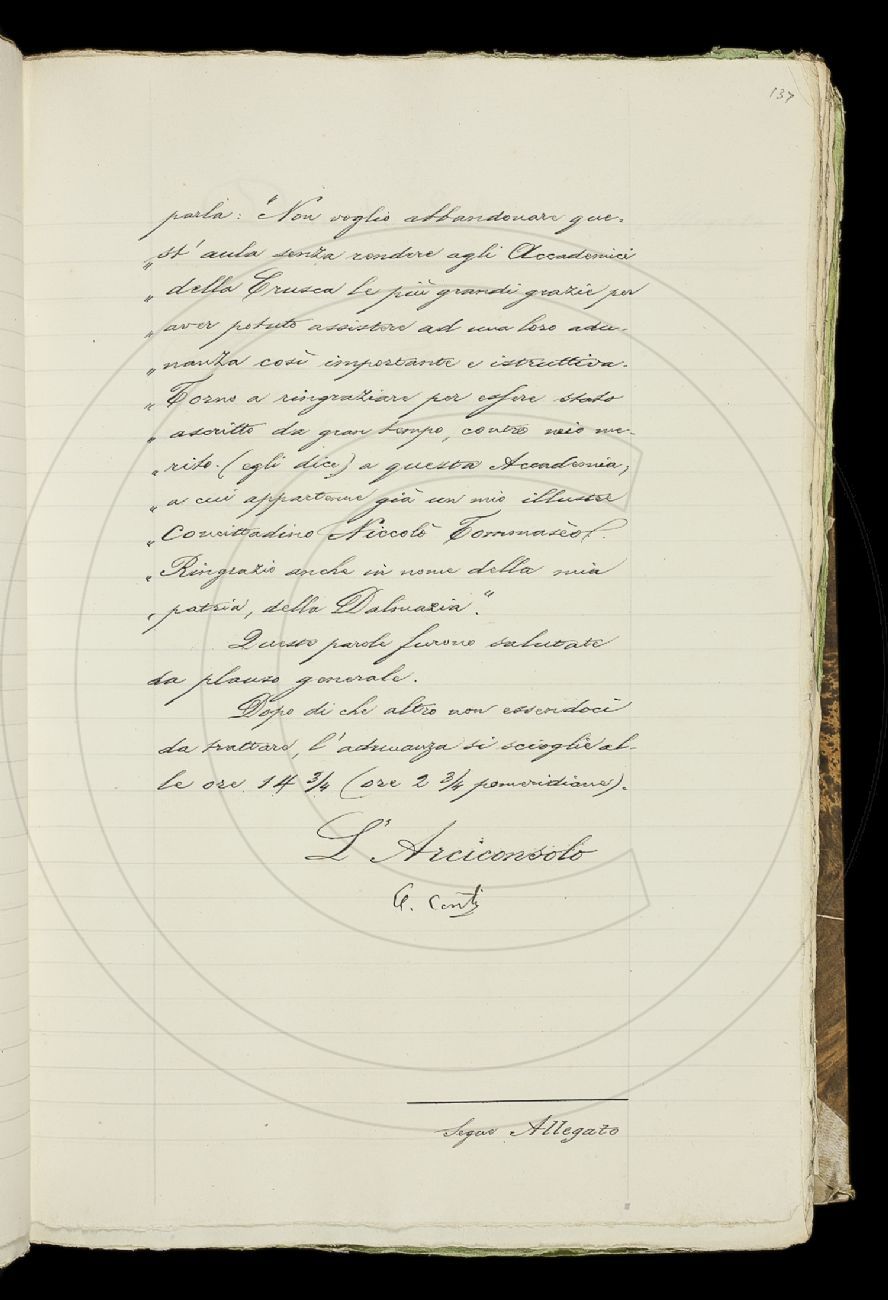 137
parla: "Non voglio abbandonare que-
„ st' aula senza rendere agli Accademici
„ della Crusca le più grandi grazie per
„ aver potuto assistere ad una loro adu-
„ nanza così importante e istruttiva.
„ Torno a ringraziare per essere stato
„ ascritto da gran tempo, contro mio me-
„ rito (egli dice) a questa Accademia,
„ a cui appartenne già un mio illustre
„ Concittadino Niccolò Tommasèo.
„ Ringrazio anche in nome della mia
„ patria, della Dalmazia".
Queste parole furono salutate
da plauso generale.
Dopo di che altro non essendoci
da trattare, l'adunanza si scioglie al-
le ore 14 3/4 (ore 2 3/4 pomeridiane).
L'Arciconsolo
A. Conti
Segue Allegato